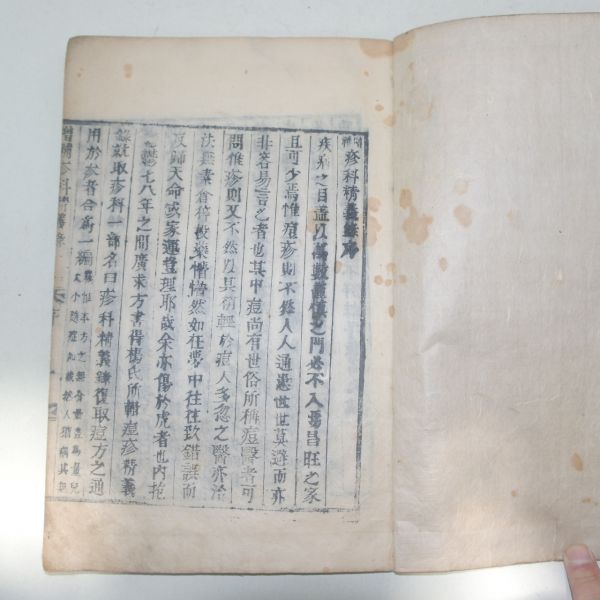 增補疹科精義錄序
疾病之目蓋以萬數謹慎之門必不入焉昌旺之家
且可少焉惟痘疹則不然人人通患世世莫避而亦
非容易言之者也其中痘尚有世俗所称痘醫者可
問惟疹則又不然以其稍輕於痘人多忽之醫亦治
法無素倉猝投藥懵然如在夢中往往致錯誤而
反歸天命或家運豈理耶哉余亦傷於虎者也內抱
七八年之間廣求方書得楊氏所輯痘疹精義
錄就取疹科一部名曰疹科精義錄復取痘方之通
用於疹者合為一編
增補疹科精義錄